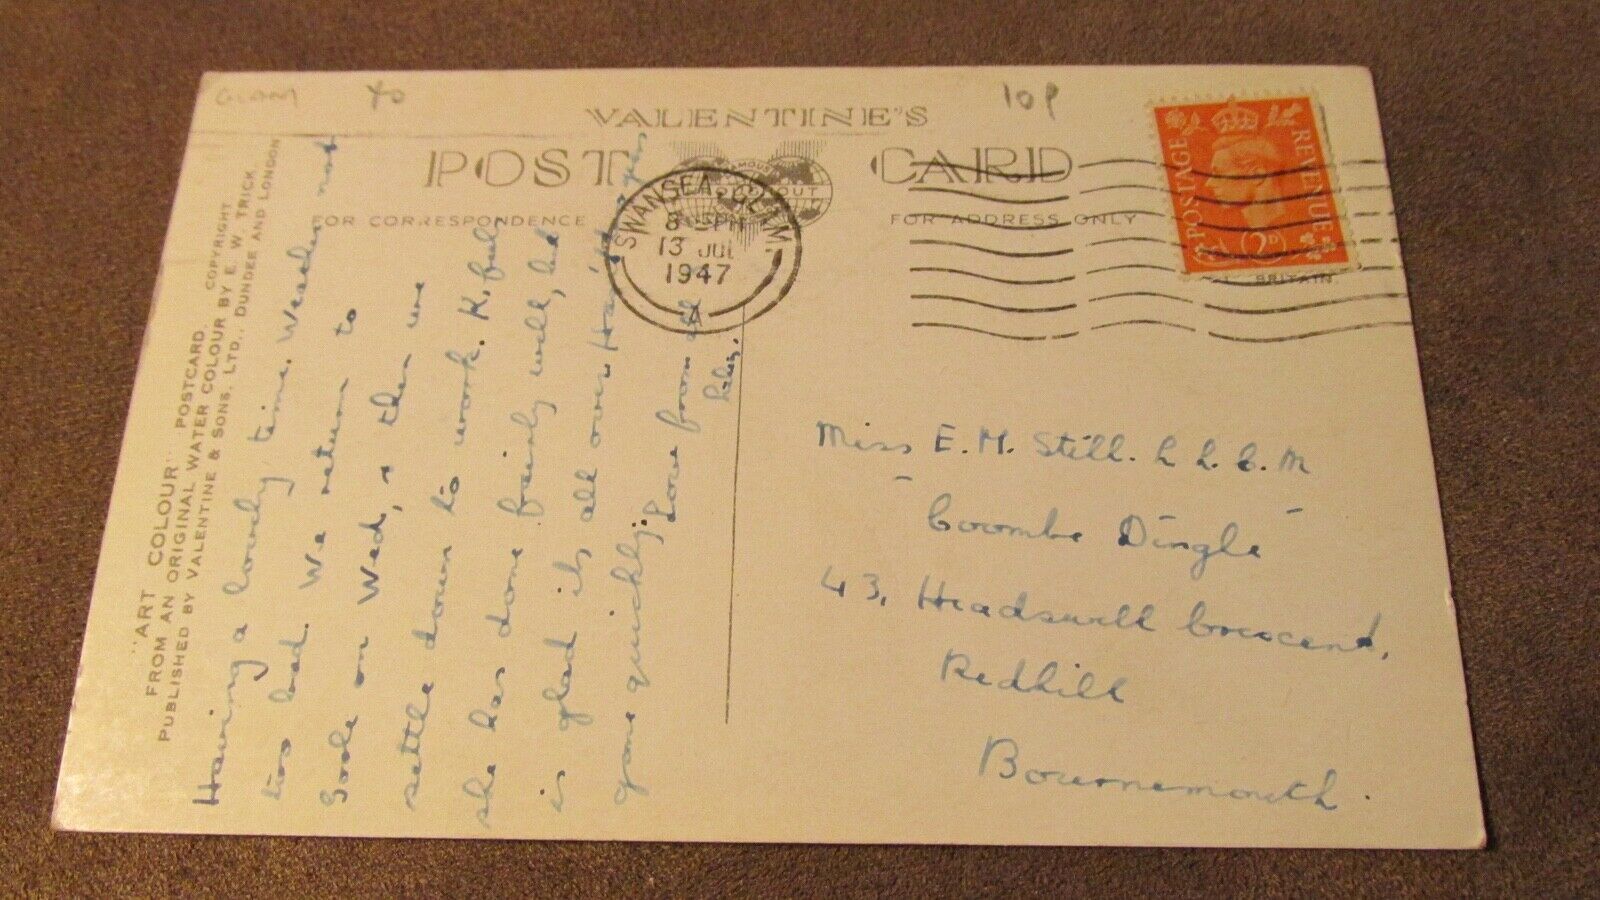 GLAM
10P
VALENTINE'S
POST CARD
FOR CORRESPONDENCE
FOR ADDRESS ONLY
SWANSEA GLAM
8 15PM
13 JUL
1947
POSTAGE REVENUE
2D
BRITAIN.
"ART COLOUR" POSTCARD.
FROM AN ORIGINAL WATER COLOUR BY E. W. TRICK
PUBLISHED BY VALENTINE & SONS, LTD., DUNDEE AND LONDON
COPYRIGHT
Having a lovely time. Weather not
too bad. We return to
Goole on Wed, & then we
settle down to work. K. feels
she has done fairly well, but
is glad it's all over. Hasn't the year
gone quickly. Love from all
Miss E. M. Still. L L. C. M
Coombe Dingle
43, Headswell Crescent,
Redhill
Bournemouth.